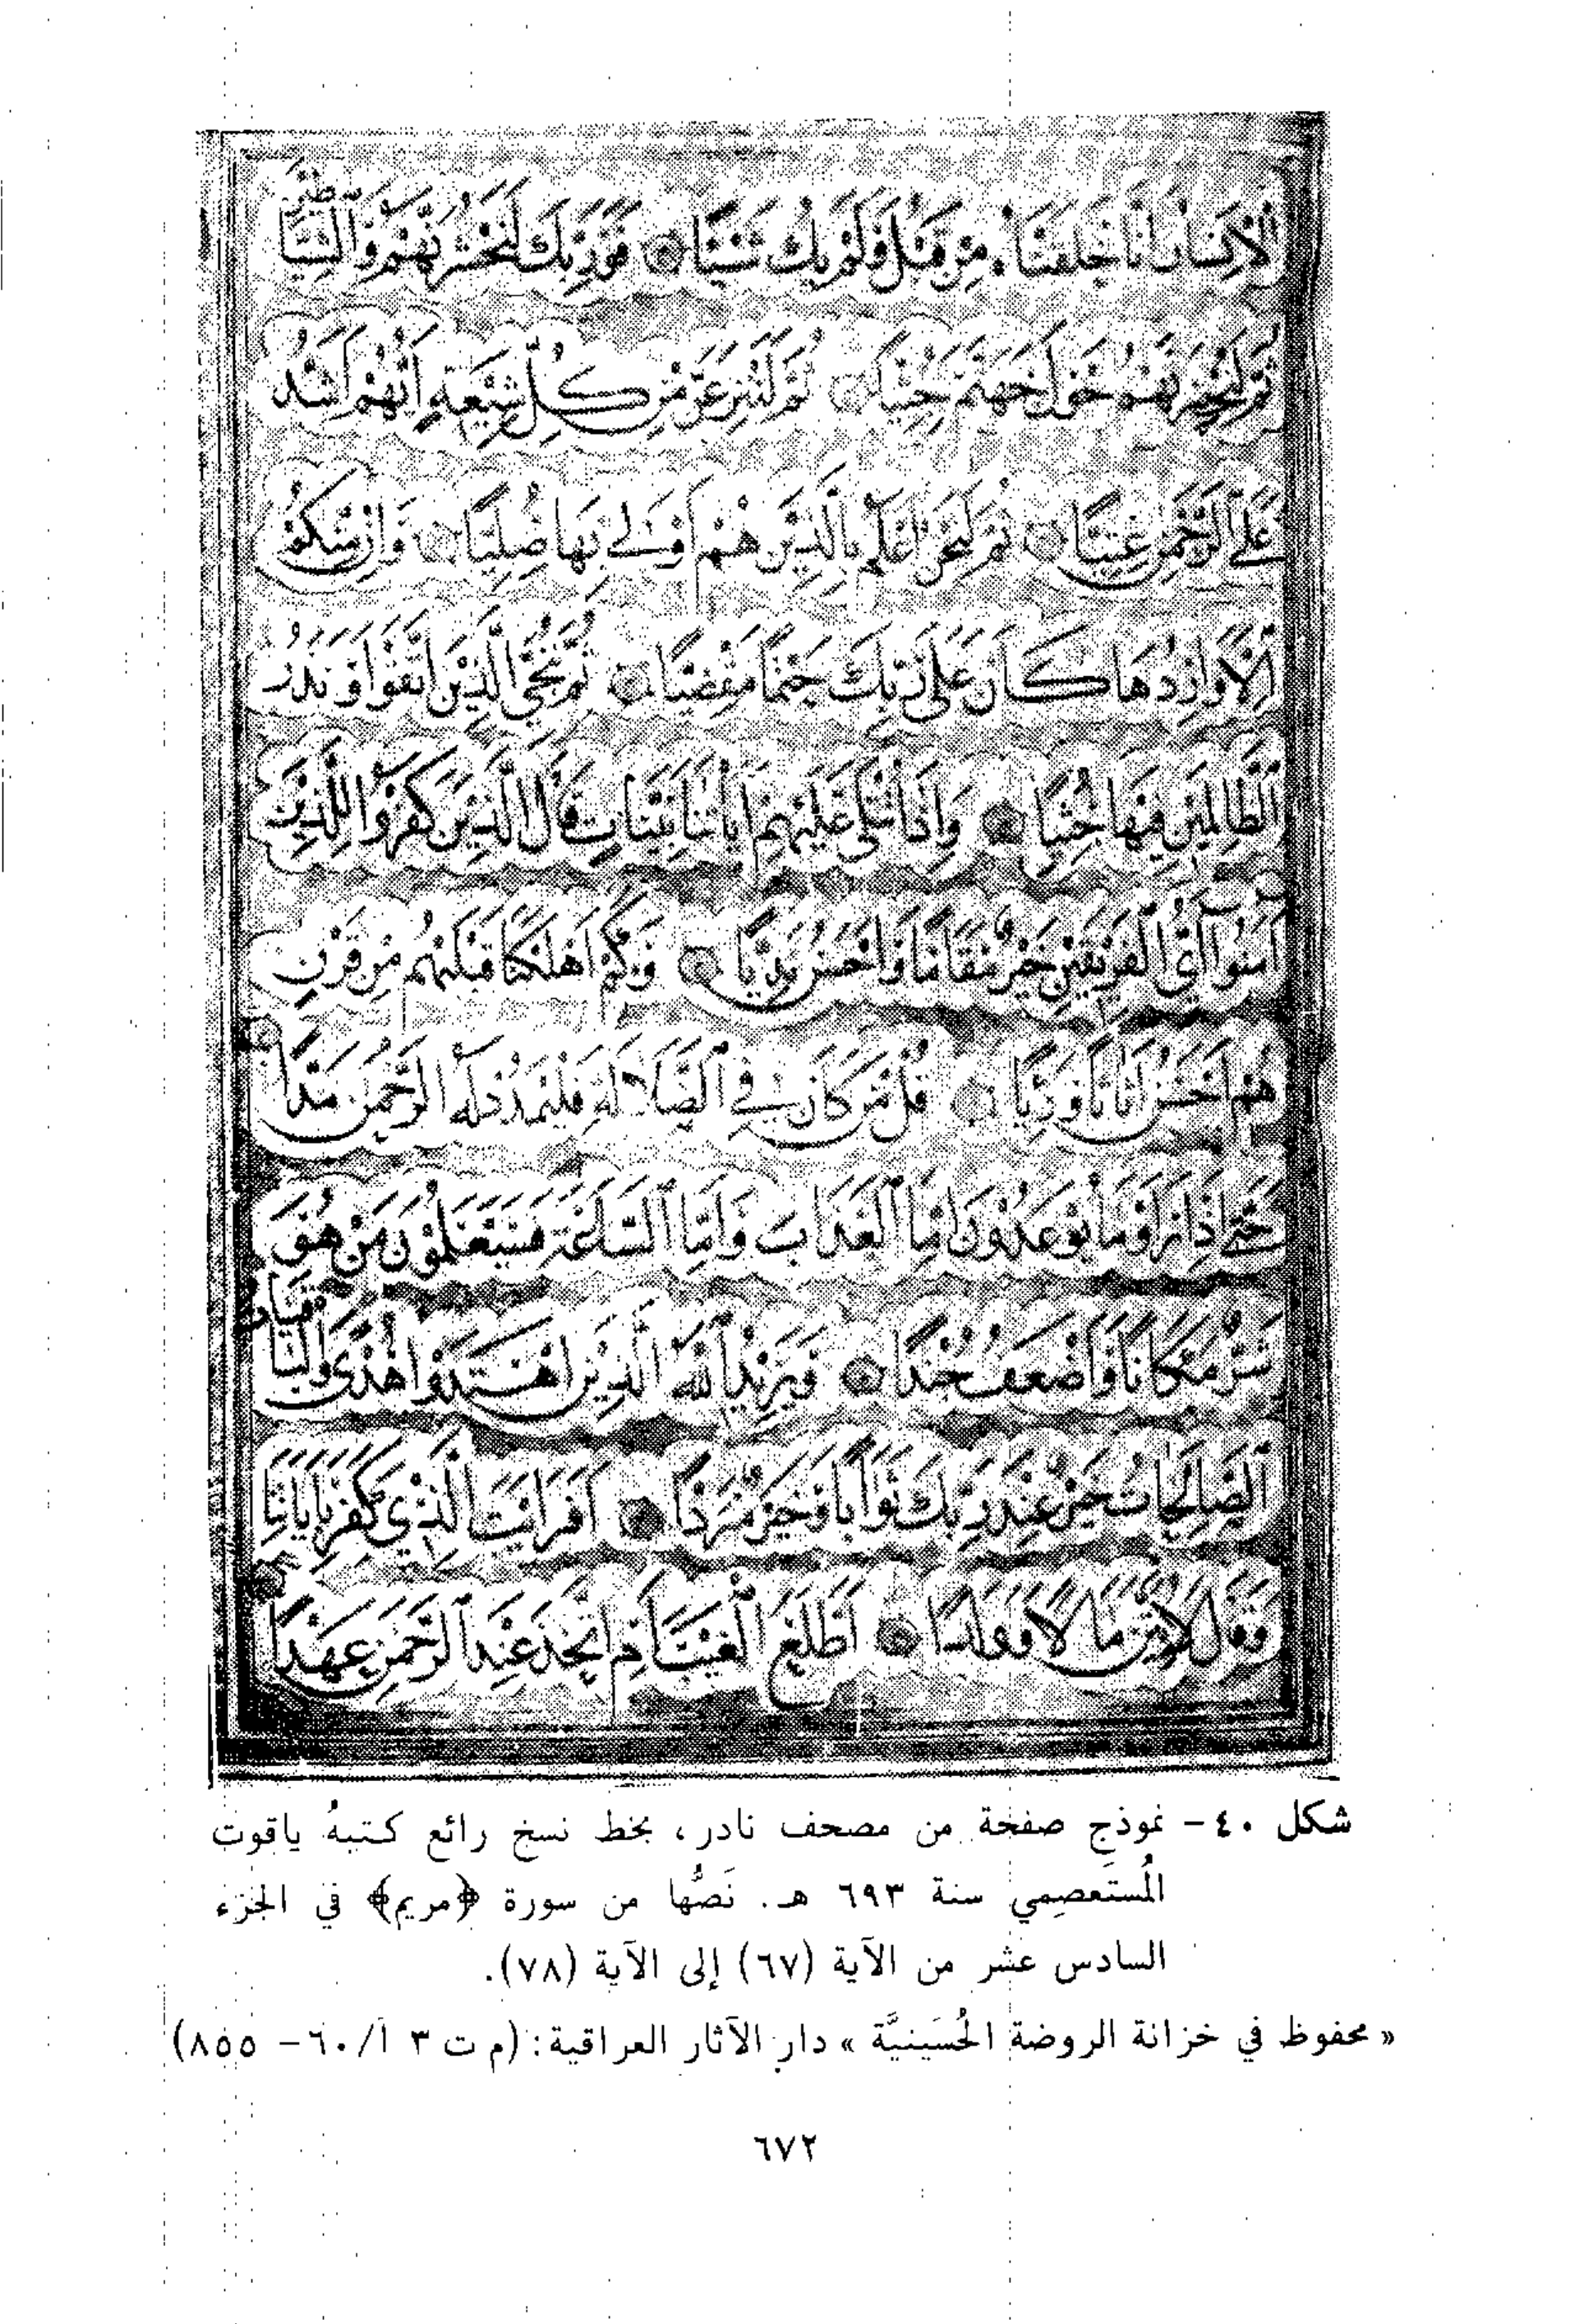 الإنسان أنا خلقناه من قبل ولم يك شيئا فوربك لنحشرنهم والشياطين
ثم لنحضرنهم حول جهنم جثيا ثم لننزعن من كل شيعة أيهم أشد
على الرحمن عتيا ثم لنحن أعلم بالذين هم أولى بها صليا وإن منكم
إلا واردها كان على ربك حتما مقضيا ثم ننجي الذين اتقوا ونذر
الظالمين فيها جثيا وإذا تتلى عليهم آياتنا بينات قال الذين كفروا للذين
آمنوا أي الفريقين خير مقاما وأحسن نديا وكم أهلكنا قبلهم من قرن
هم أحسن أثاثا ورئيا قل من كان في الضلالة فليمدد له الرحمن مدا
حتى إذا رأوا ما يوعدون إما العذاب وإما الساعة فسيعلمون من هو
شر مكانا وأضعف جندا ويزيد الله الذين اهتدوا هدى والباقيات
الصالحات خير عند ربك ثوابا وخير مردا أفرأيت الذي كفر بآياتنا
وقال لأوتين مالا وولدا أطلع الغيب أم اتخذ عند الرحمن عهدا
شكل ٤٠- نموذج صفحة من مصحف نادر، بخط نسخ رائع كتبهُ ياقوت
المُستَعصِمي سنة ٦٩٣ هـ. نَصُّها من سورة ﴿مريم﴾ في الجزء
السادس عشر من الآية (٦٧) إلى الآية (٧٨).
« محفوظ في خزانة الروضة الحُسَينيَّة » دار الآثار العراقية: (م ت ٣ أ/٦٠- ٨٥٥)
٦٧٢